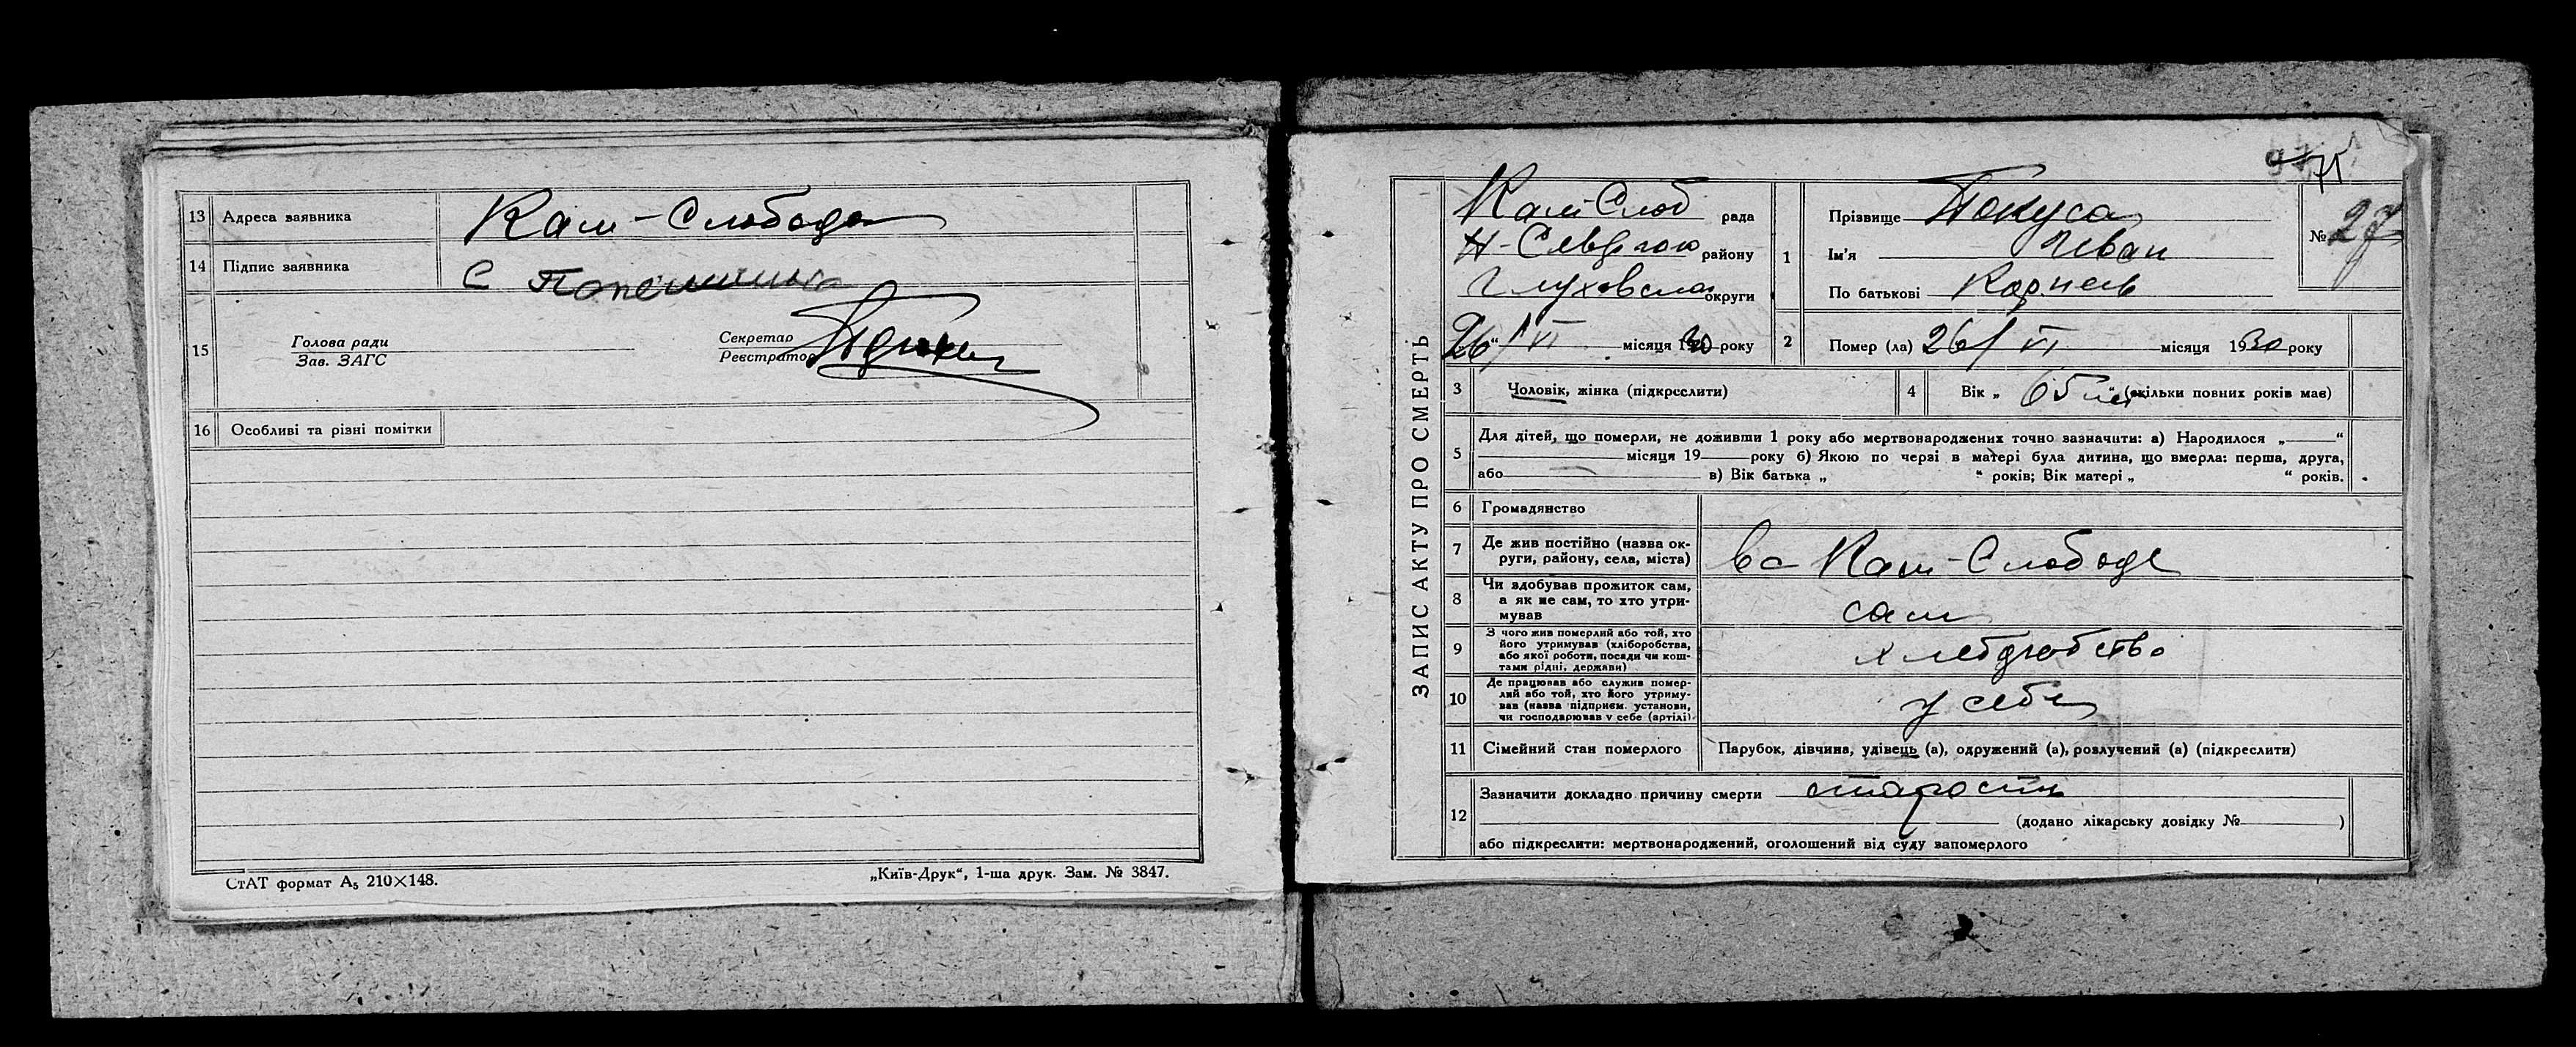 13 Адреса заявника Кам-Слобода
14 Підпис заявника С
15 Голова ради
Зав. ЗАГС
Секретар
Реєстратор
16 Особливі та різні помітки
СтАТ формат А₅ 210×148.
„Київ-Друк“, 1-ша друк. Зам. № 3847.
75
ЗАПИС АКТУ ПРО СМЕРТЬ
Кам-Слоб рада
Н-Сіверского району
Глуховской округи
„26“/VI місяця 1930 року
1 Прізвище Покуса
Ім'я Иван
По батькові Корнеев
№ 27
2 Помер (ла) 26/VI місяця 1930 року
3 Чоловік, жінка (підкреслити)
4 Вік „ 65 лет “ (скільки повних років має)
5 Для дітей, що померли, не доживши 1 року або мертвонароджених точно зазначити: а) Народилося „ “
місяця 19 року б) Якою по черзі в матері була дитина, що вмерла: перша, друга,
або в) Вік батька „ “ років; Вік матері „ “ років.
6 Громадянство
7 Де жив постійно (назва ок-
руги, району, села, міста)
в с Кам-Слободе
8 Чи здобував прожиток сам,
а як не сам, то хто утри-
мував
сам
9 З чого жив померлий або той, хто
його утримував (хліборобства,
або якої роботи, посади чи кош-
тами рідні, держави)
хлеборобство
10 Де працював або служив помер-
лий або той, хто його утриму-
вав (назва підприєм. установи,
чи господарював у себе (артілі)
у себе
11 Сімейний стан померлого
Парубок, дівчина, удівець (а), одружений (а), розлучений (а) (підкреслити)
12 Зазначити докладно причину смерти старость
(додано лікарську довідку № )
або підкреслити: мертвонароджений, оголошений від суду запомерлого